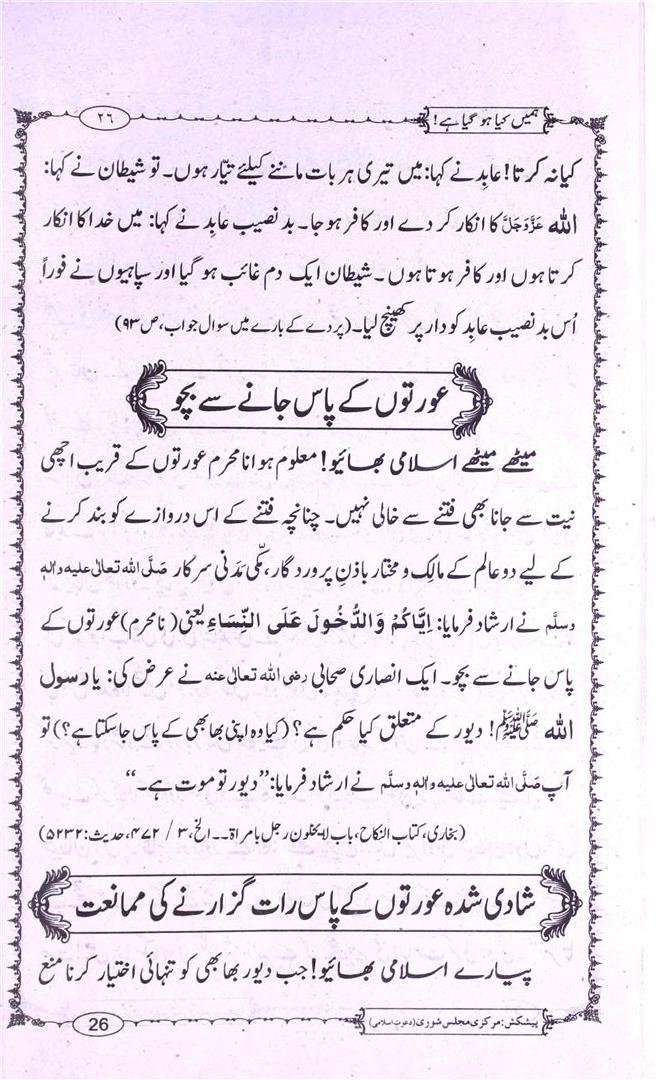 ہمیں کیا ہو گیا ہے!
۲۶
کیا نہ کرتا! عابِد نے کہا: میں تیری ہر بات ماننے کیلئے تیّار ہوں۔ تو شیطان نے کہا:
اللہ عَزَّوَجَلَّ کا انکار کر دے اور کافر ہو جا۔ بد نصیب عابِد نے کہا: میں خدا کا انکار
کرتا ہوں اور کافر ہوتا ہوں۔ شیطان ایک دم غائب ہو گیا اور سپاہیوں نے فوراً
اُس بد نصیب عابِد کو دار پر کھینچ لیا۔ (پردے کے بارے میں سوال جواب، ص ۹۳)
عورتوں کے پاس جانے سے بچو
میٹھے میٹھے اسلامی بھائیو! معلوم ہوا نامحرم عورتوں کے قریب اچھی
نیت سے جانا بھی فتنے سے خالی نہیں۔ چنانچہ فتنے کے اس دروازے کو بند کرنے
کے لیے دو عالم کے مالِک و مختار باذنِ پروردگار، مکّی مَدَنی سرکار صَلَّی اللہ تعالٰی علیہ واٰلہٖ
وسلَّم نے ارشاد فرمایا: اِیَّاکُمْ وَالدُّخُولَ عَلَی النِّسَاءِ یعنی (نامحرم) عورتوں کے
پاس جانے سے بچو۔ ایک انصاری صحابی رضی اللہ تعالٰی عنہ نے عرض کی: یا رسول
اللہ ﷺ! دیور کے متعلق کیا حکم ہے؟ (کیا وہ اپنی بھابھی کے پاس جا سکتا ہے؟) تو
آپ صَلَّی اللہ تعالٰی علیہ واٰلہٖ وسلَّم نے ارشاد فرمایا: ”دیور تو موت ہے۔“
(بخاری، کتاب النکاح، باب لا یخلون رجل بامراۃ۔۔ الخ، ۳ / ۴۷۲، حدیث: ۵۲۳۲)
شادی شدہ عورتوں کے پاس رات گزارنے کی ممانعت
پیارے اسلامی بھائیو! جب دیور بھابھی کو تنہائی اختیار کرنا منع
پیشکش: مرکزی مجلس شوریٰ (دعوتِ اسلامی)
26